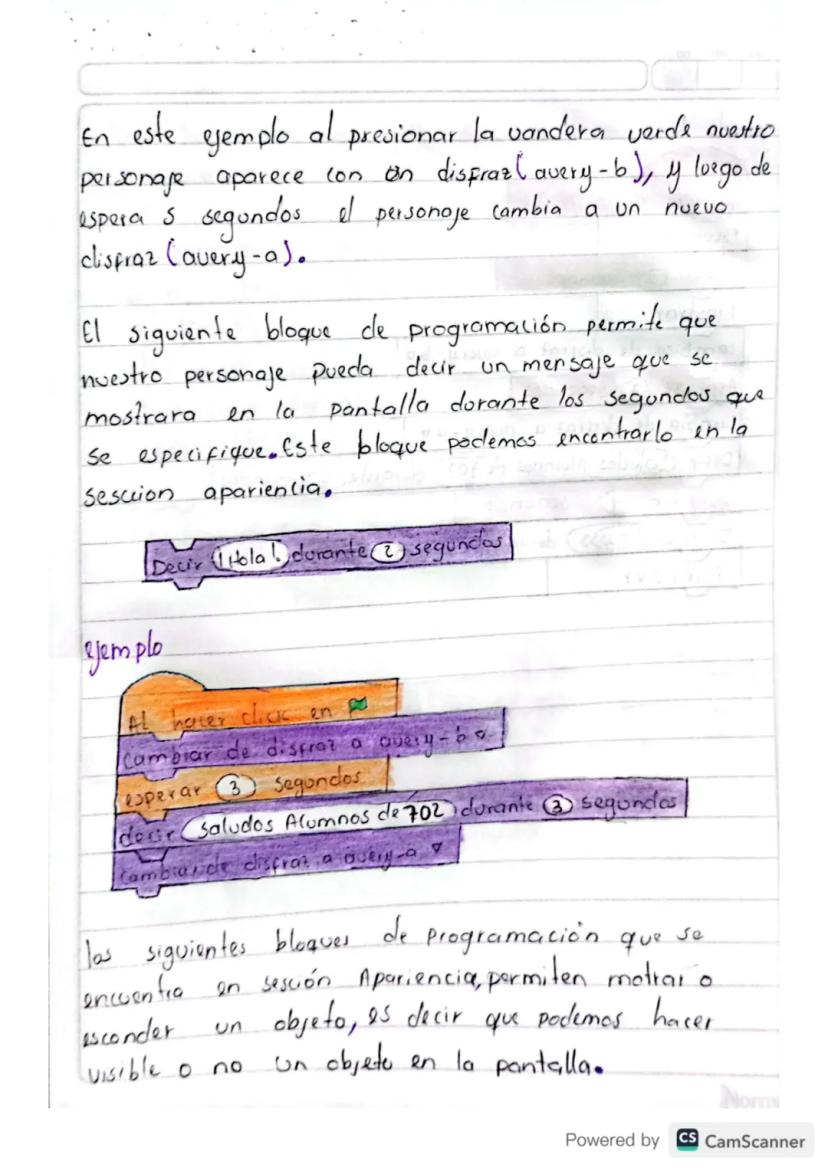 En este ejemplo al presionar la vandera verde nuestro
personaje aparece con un disfraz (avery-b), y luego de
espera 5 segundos el personaje cambia a un nuevo
disfraz (avery-a).
El siguiente bloque de programación permite que
nuestro personaje pueda decir un mensaje que se
mostrara en la pantalla durante los segundos que
se especifique. Este bloque podemos encontrarlo en la
sescuion apariencia.
Decir ¡Hola! durante 2 segundos
ejemplo
Al hacer click en
Cambiar de disfraz a avery-b
esperar 3 segundos
decir saludos Alumnos de 702 durante 3 segundos
Cambiar de disfraz a avery-a
los siguientes bloques de programación que se
encuentra en sesción Apariencia, permiten motrar o
esconder un objeto, es decir que podemos hacer
visible o no un objeto en la pantalla.
Norm
Powered by CS CamScanner